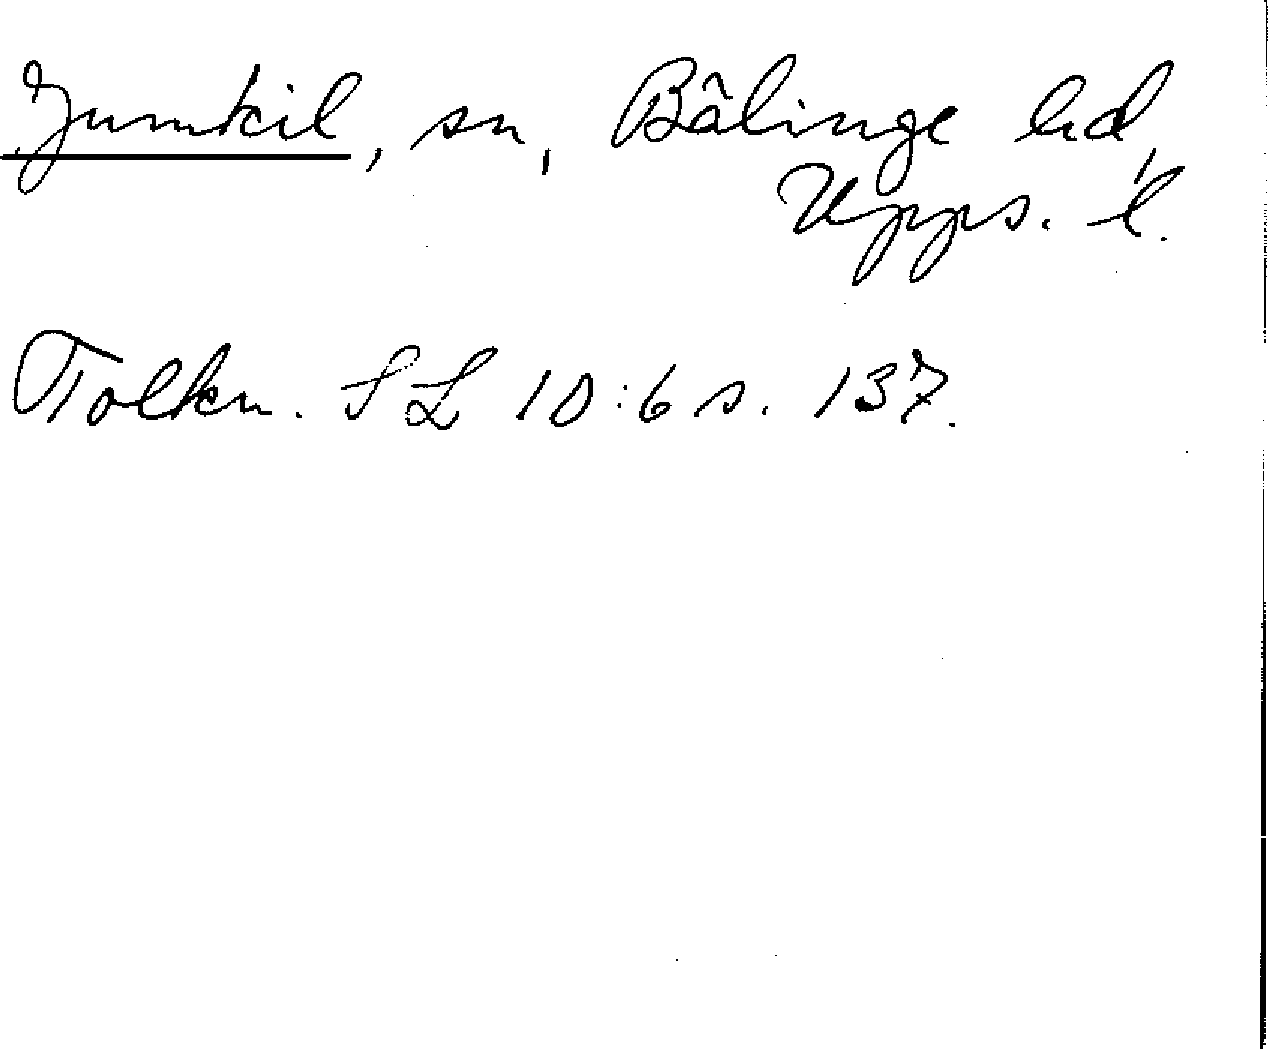 Jumkil, sn, Bälinge hd,
Upps. l.
Tolkn. SL 10:6 s. 137.